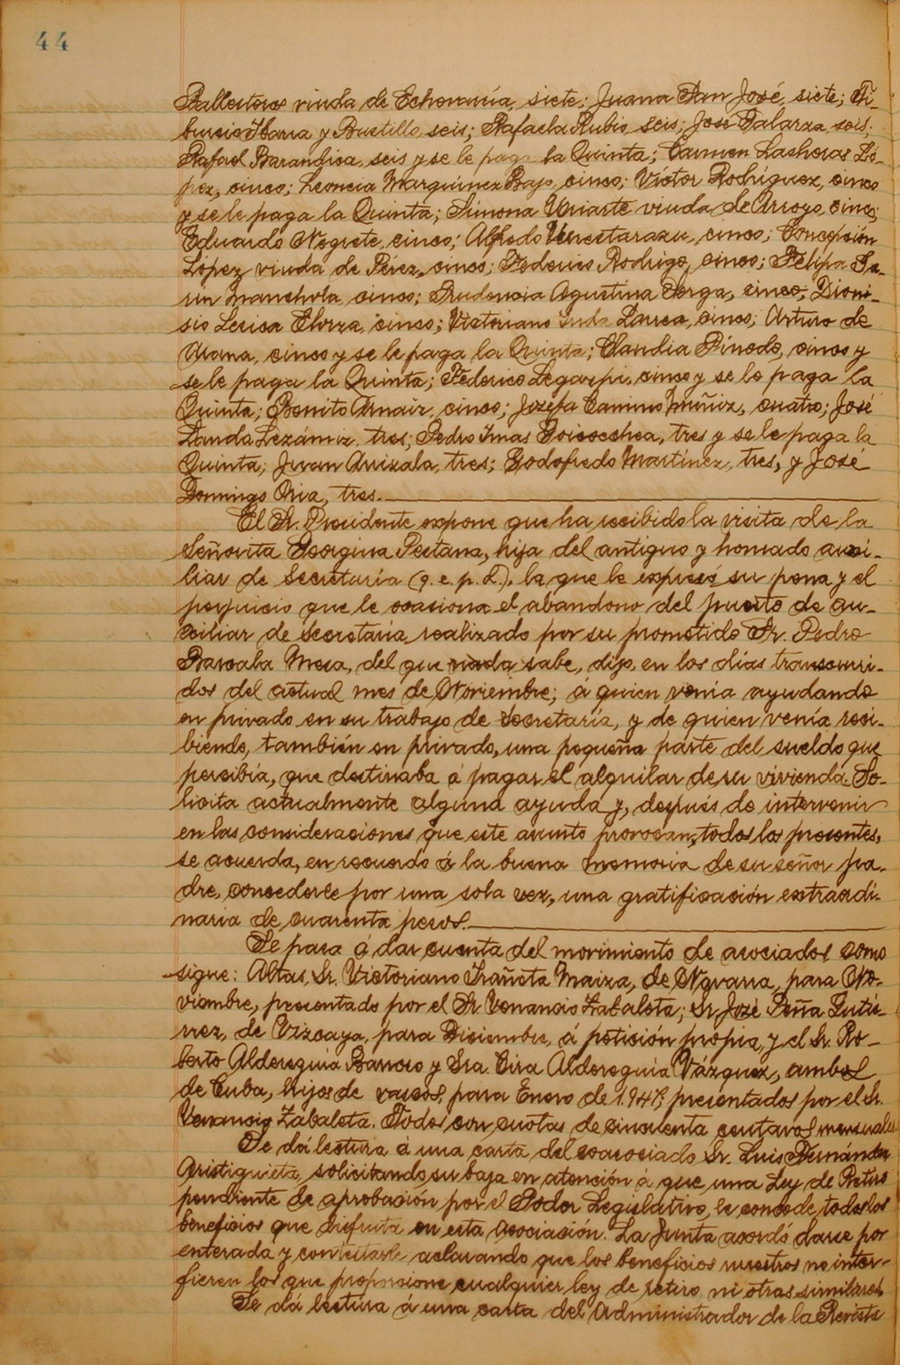 44
Ballesteros viuda de Echevarría, siete; Juana San José, siete; Ti-
burcio Ibarra y Bustillo, seis; Rafaela Rubio, seis; José Galarza, seis;
Rafael Barandica, seis y se le paga la Quinta; Carmen Lasheras Ló-
pez, cinco; Leoncia Marquínez Bajo, cinco; Víctor Rodríguez, cinco
y se le paga la Quinta; Simona Uriarte viuda de Arroyo, cinco;
Eduardo Negrete, cinco; Alfredo cinco; Concepción
López viuda de Pérez, cinco; Federico Rodrigo, cinco; Felipa
cinco; Prudencia Agustina cinco; Dioni-
sio Elorza, cinco; Victoriano cinco; Arturo de
Arana, cinco y se le paga la Quinta; Claudia Pinedo, cinco y
se le paga la Quinta; Federico Legarpi, cinco y se le paga la
Quinta; Benito Arnaiz, cinco; Josefa Camino Muñiz, cuatro; José
Landa Lezámiz, tres; Pedro Imas Goicoechea, tres y se le paga la
Quinta; Juan tres; Godofredo Martínez, tres, y José
Domingo Oria, tres.
El Sr. Presidente expone que ha recibido la visita de la
Señorita Georgina Pestana, hija del antiguo y honrado auxi-
liar de Secretaría (q. e. p. d.), la que le expresó su pena y el
perjuicio que le ocasiona el abandono del puesto de au-
xiliar de Secretaría realizado por su prometido Sr. Pedro
Mesa, del que nada sabe, dijo, en los días transcurri-
dos del actual mes de Noviembre; á quien venía ayudando
en privado en su trabajo de Secretaría, y de quien venía reci-
biendo, también en privado, una pequeña parte del sueldo que
percibía, que destinaba á pagar el alquilar de su vivienda. So-
licita actualmente alguna ayuda y, después de intervenir
en las consideraciones que este asunto provocan, todos los presentes,
se acuerda, en recuerdo á la buena memoria de su señor pa-
dre, concederle por una sola vez, una gratificación extraordi-
naria de cuarenta pesos.
Se pasa á dar cuenta del movimiento de asociados como
sigue: Altas, Sr. Victoriano Irañeta Maiza, de Navarra, para No-
viembre, presentado por el Sr. Venancio Zabaleta; Sr. José Peña Gutié-
rrez, de Vizcaya, para Diciembre, á petición propia, y el Sr. Ro-
berto Aldereguía Barcero y Sra. Cira Aldereguía Vázquez, ambos
de Cuba, hijos de vascos, para Enero de 1.947, presentados por el Sr.
Venancio Zabaleta. Todos con cuotas de cincuenta centavos mensuales.
Se dá lectura á una carta del coasociado Sr. Luis Fernández
Aristiguieta, solicitando su baja en atención á que una Ley de Retiro
pendiente de aprobación por el Poder Legislativo, le concede todos los
beneficios que disfruta en esta Asociación. La Junta acordó darse por
enterada y contestarle aclarando que los beneficios nuestros no inter-
fieren los que proporcione cualquier ley de retiro, ni otras similares.
Se dá lectura á una carta del Administrador de la Revista